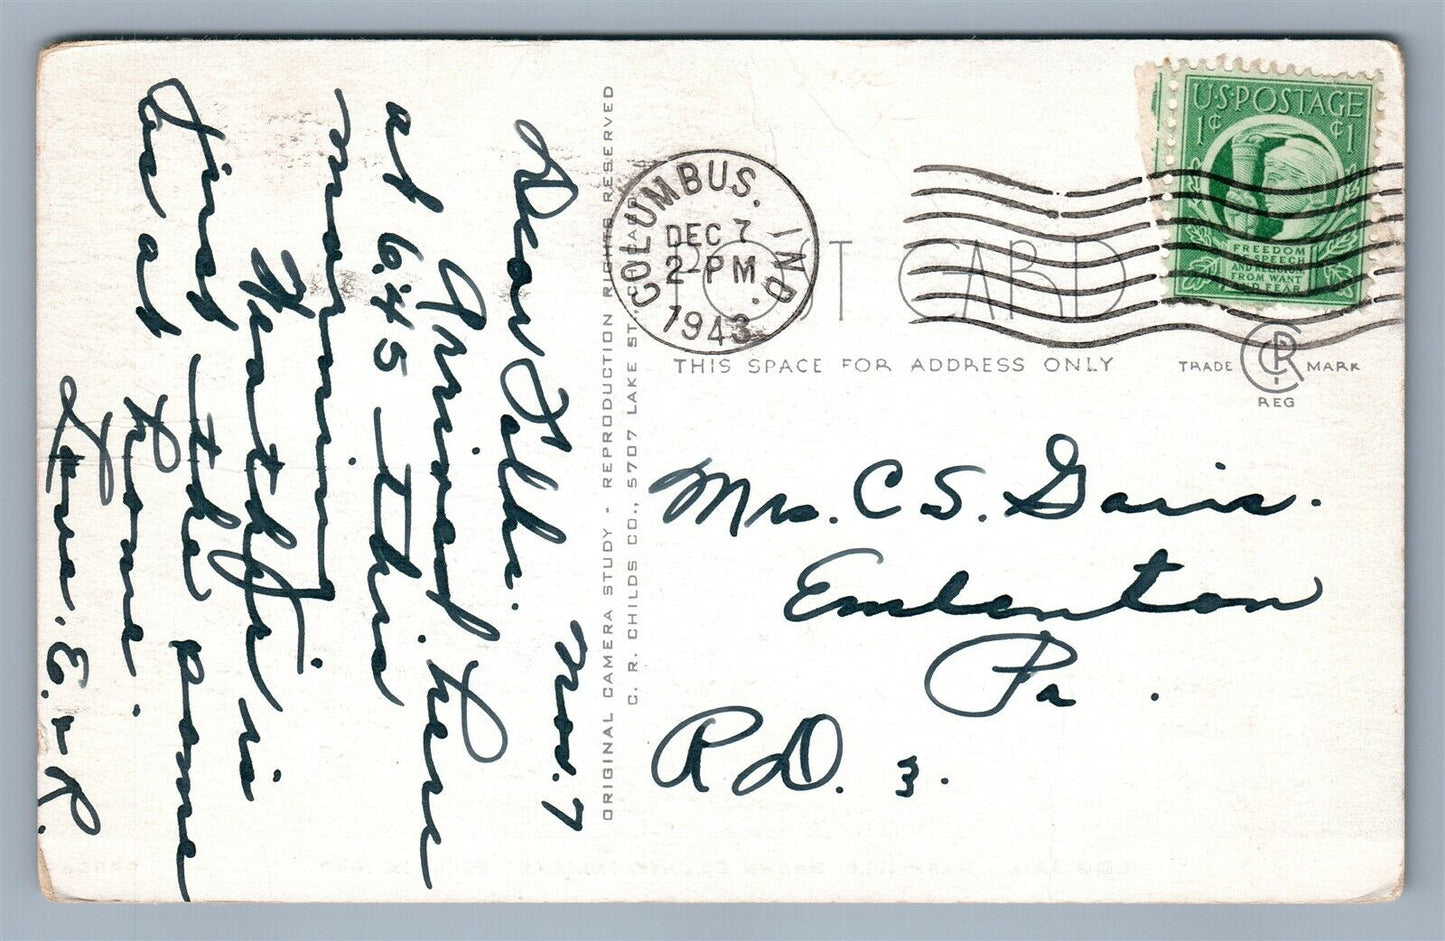 Nov. 7
Dear Folks.
Arrived here
at 6:45 this
morning
Weather is
fine the same
as at home
Love. E. R.
ORIGINAL CAMERA STUDY - REPRODUCTION RIGHTS RESERVED
C. R. CHILDS CO., 5707 LAKE ST.
COLUMBUS. IND.
DEC 7
2-PM
1943
U.S. POSTAGE
1¢ ¢1
FREEDOM
OF SPEECH
AND RELIGION
FROM WANT
AND FEAR
POST CARD
THIS SPACE FOR ADDRESS ONLY
TRADE CR MARK
REG
Mrs. C. S. Davis.
Emlenton
Pa.
R.D. 3.